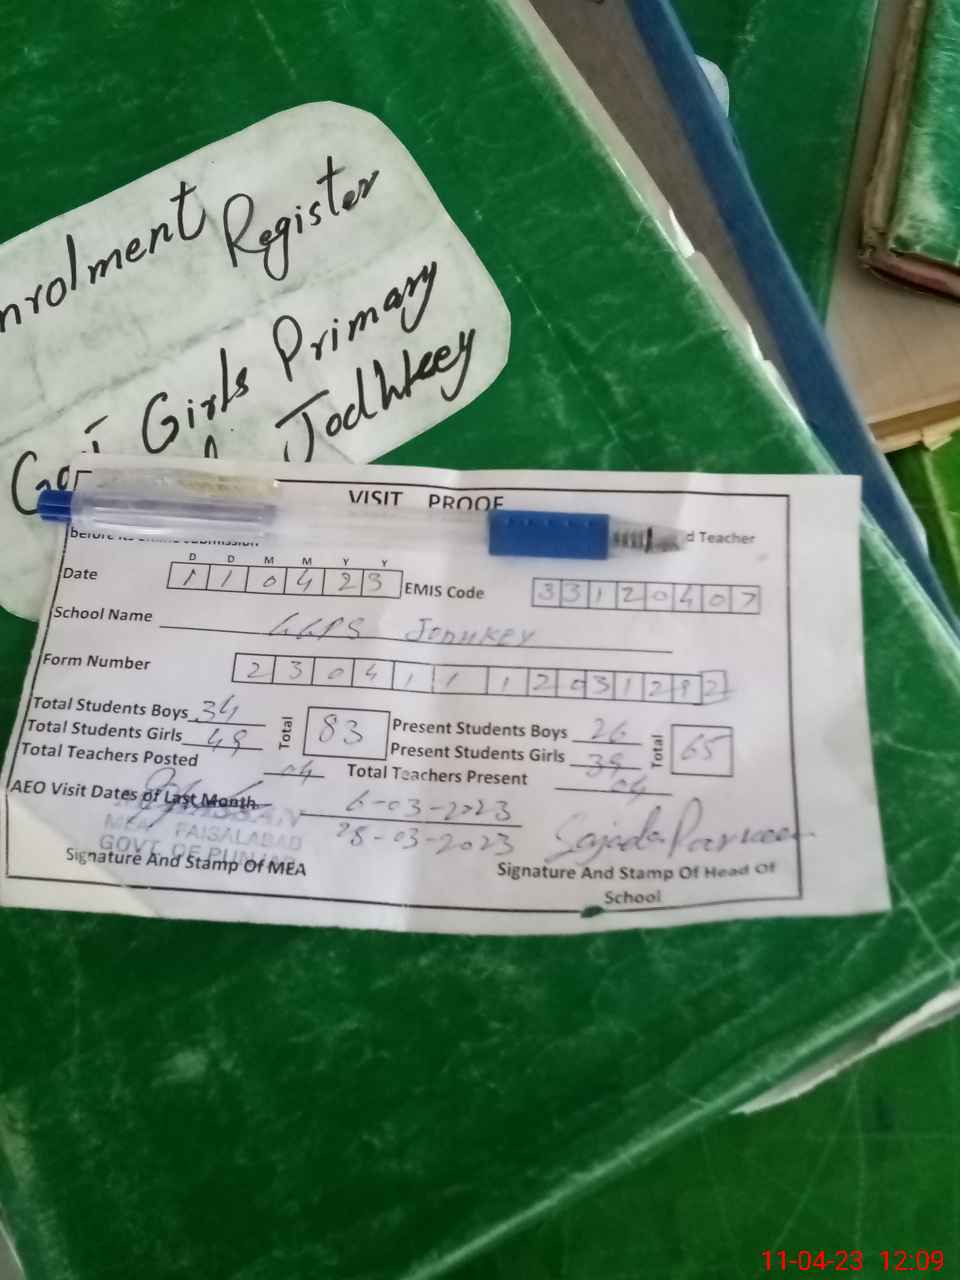 nrolment Register
Govt Girls Primary
Jodhkeey
VISIT PROOF
before its online submission
d Teacher
D D M M Y Y
Date 1 1 0 4 2 3 EMIS Code 3 3 1 2 0 4 0 7
School Name GGPS JODHKEY
Form Number 2 3 0 4 1 1 1 2 0 3 1 2 9 2
Total Students Boys 34
Total Students Girls 49
Total 83
Present Students Boys 26
Present Students Girls 39
Total 65
Total Teachers Posted 04 Total Teachers Present 04
AEO Visit Dates of Last Month 6-03-2023
28-03-2023
Sajida Parveen
MEA FAISALABAD
GOVT OF PUNJAB
Signature And Stamp Of MEA
Signature And Stamp Of Head Of
School
11-04-23 12:09